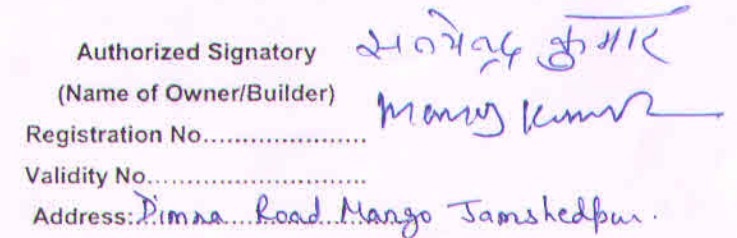 Authorized Signatory सत्येन्द्र कुमार
(Name of Owner/Builder) Manoj Kumar
Registration No.....................
Validity No............................
Address: Dimna Road Mango Jamshedpur.